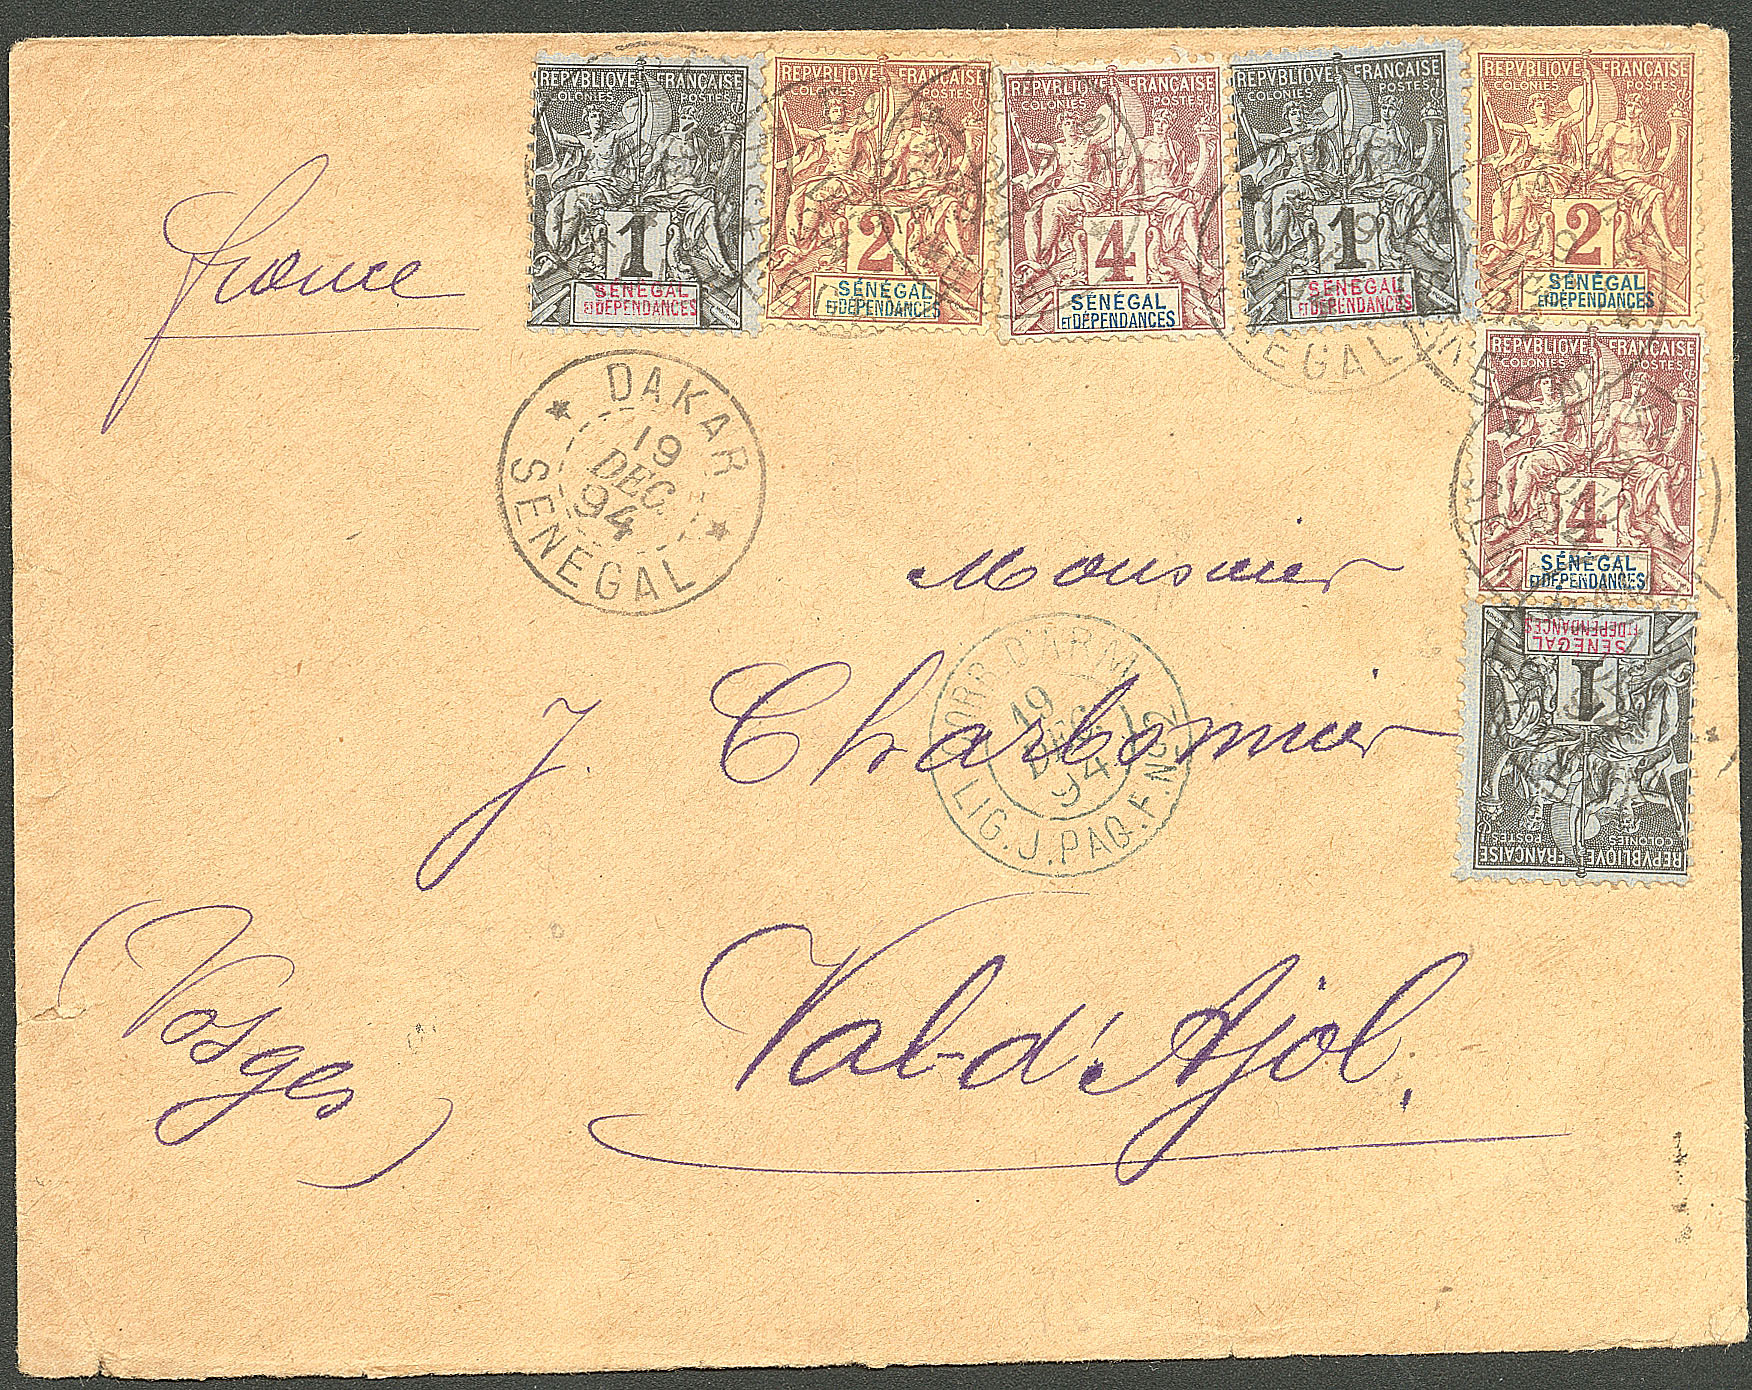 REPVBLIQVE FRANÇAISE
COLONIES POSTES
1
SÉNÉGAL
ET DÉPENDANCES
REPVBLIQVE FRANÇAISE
COLONIES POSTES
2
SÉNÉGAL
ET DÉPENDANCES
REPVBLIQVE FRANÇAISE
COLONIES POSTES
4
SÉNÉGAL
ET DÉPENDANCES
REPVBLIQVE FRANÇAISE
COLONIES POSTES
1
SÉNÉGAL
ET DÉPENDANCES
REPVBLIQVE FRANÇAISE
COLONIES POSTES
2
SÉNÉGAL
ET DÉPENDANCES
france
REPVBLIQVE FRANÇAISE
COLONIES POSTES
4
SÉNÉGAL
ET DÉPENDANCES
DAKAR
19
DEC
94
SENEGAL
SENEGAL
Monsieur
REPVBLIQVE FRANÇAISE
COLONIES POSTES
1
SÉNÉGAL
ET DÉPENDANCES
CORR. D'ARM.
19
DEC.
94
LIG. J. PAQ. F. No 2
J. Charbonnier
Val-d'Ajol.
Vosges